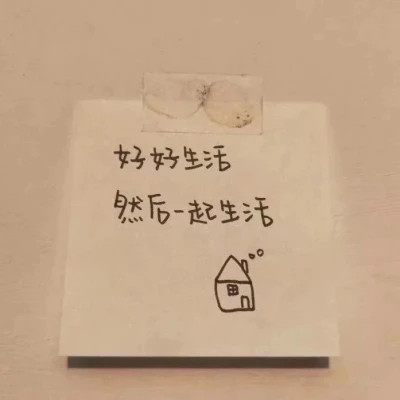 好好生活
然后一起生活